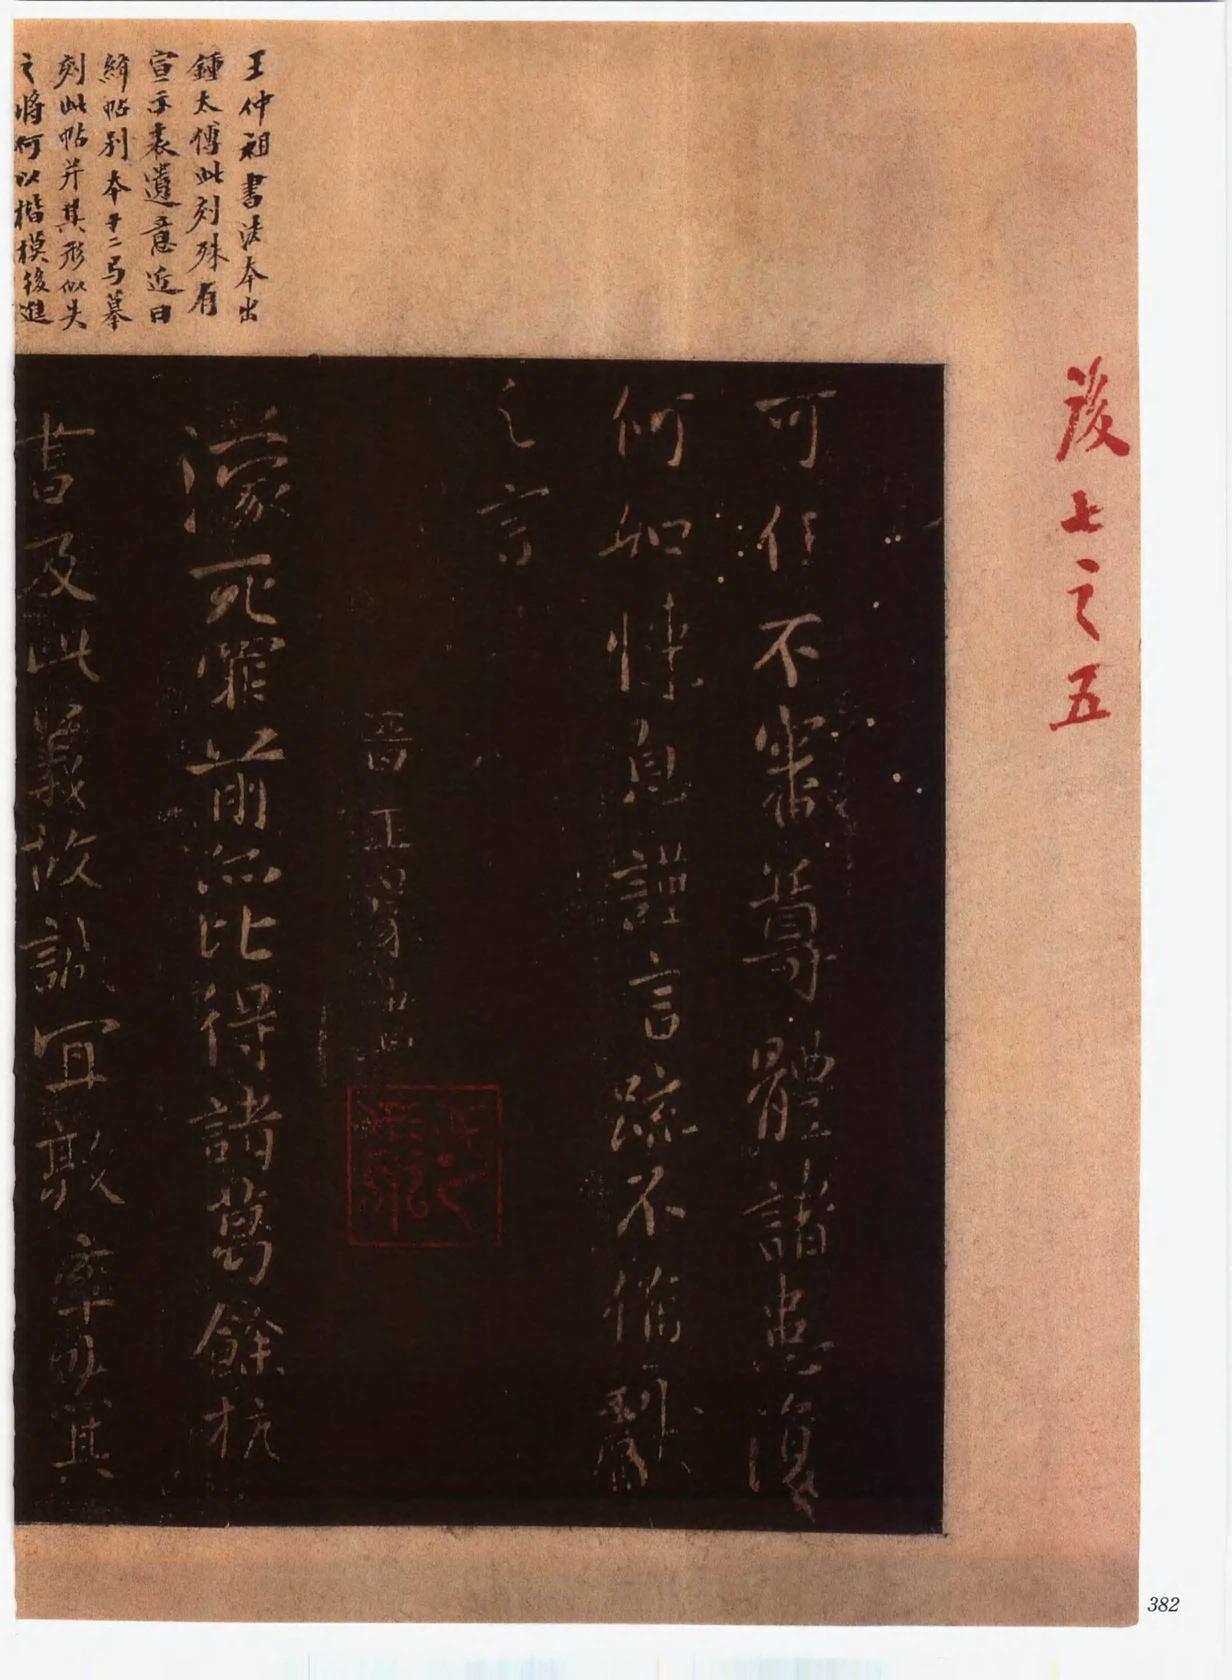 後七之五
王仲祖書法本出
鍾太傅此刻殊有
宣示表遺意近日
絳帖別本十二弓摹
刻此帖并其形似失
之將何以楷模後進
可任不審尊體諸患復
何如悚息謹言疏不備獻
之言
晉王濛書
濛死罪前亦比得諸葛餘杭
書及此義故誠宜敦率其
382